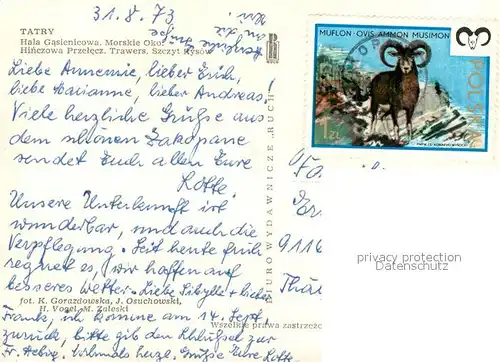 31.8.73
TATRY
Hala Gąsienicowa. Morskie Oko.
Hińczowa Przełęcz. Trawers. Szczyt Rysów
Liebe Annemie, lieber Erich,
liebe Marianne, lieber Andreas!
Viele herzliche Grüße aus
dem schönen Zakopane
sendet Euch allen Eure
Rotte.
Unsere Unterkunft ist
wunderbar, und auch die
Verpflegung. Seit heute früh
regnet es, wir hoffen auf
besseres Wetter. Liebe Sibylle + lieber
fot. K. Gorazdowska, J. Osuchowski,
H. Vogel, M. Zaleski
Frank, ich komme am 14. Sept.
zurück, bitte gib den Schlüssel zur
Wszelkie prawa zastrzeżo
Fr. vielmals herzl. Grüße Eure Rotte
BIURO WYDAWNICZE "RUCH"
MUFLON · OVIS AMMON MUSIMON
POL
1 ZŁ
Fa
Er
9116
Thü
privacy protection
Datenschutz